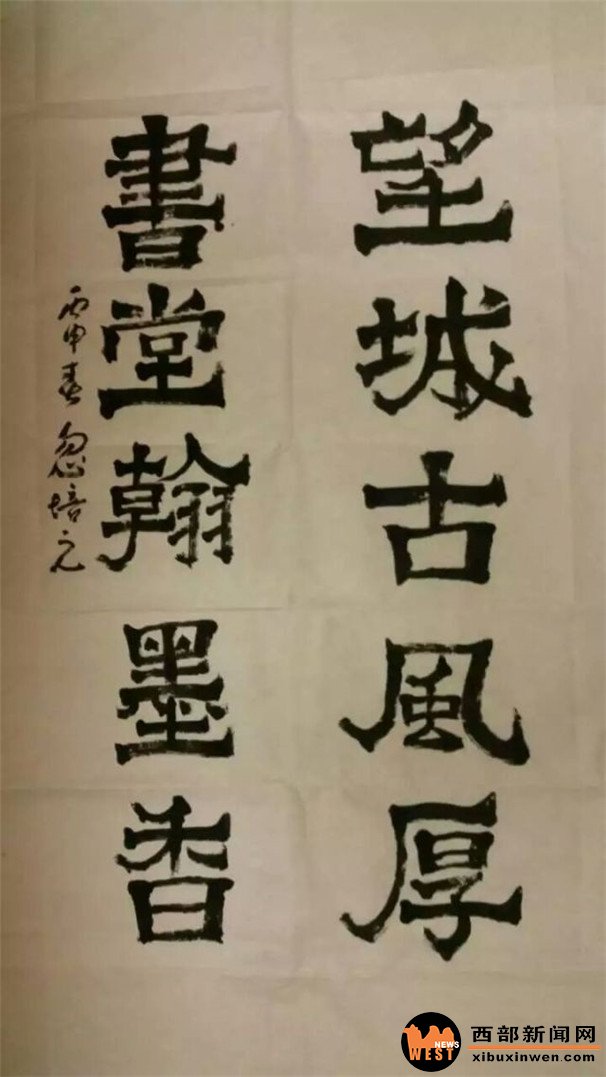 望城古風厚
書堂翰墨香
丙申春 忽培元
NEWS
WEST
西部新闻网
xibuxinwen.com